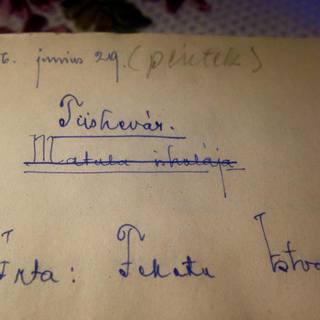 6. június 29. (péntek)
Tüskevár.
Matula iskolája
Írta: Fekete István